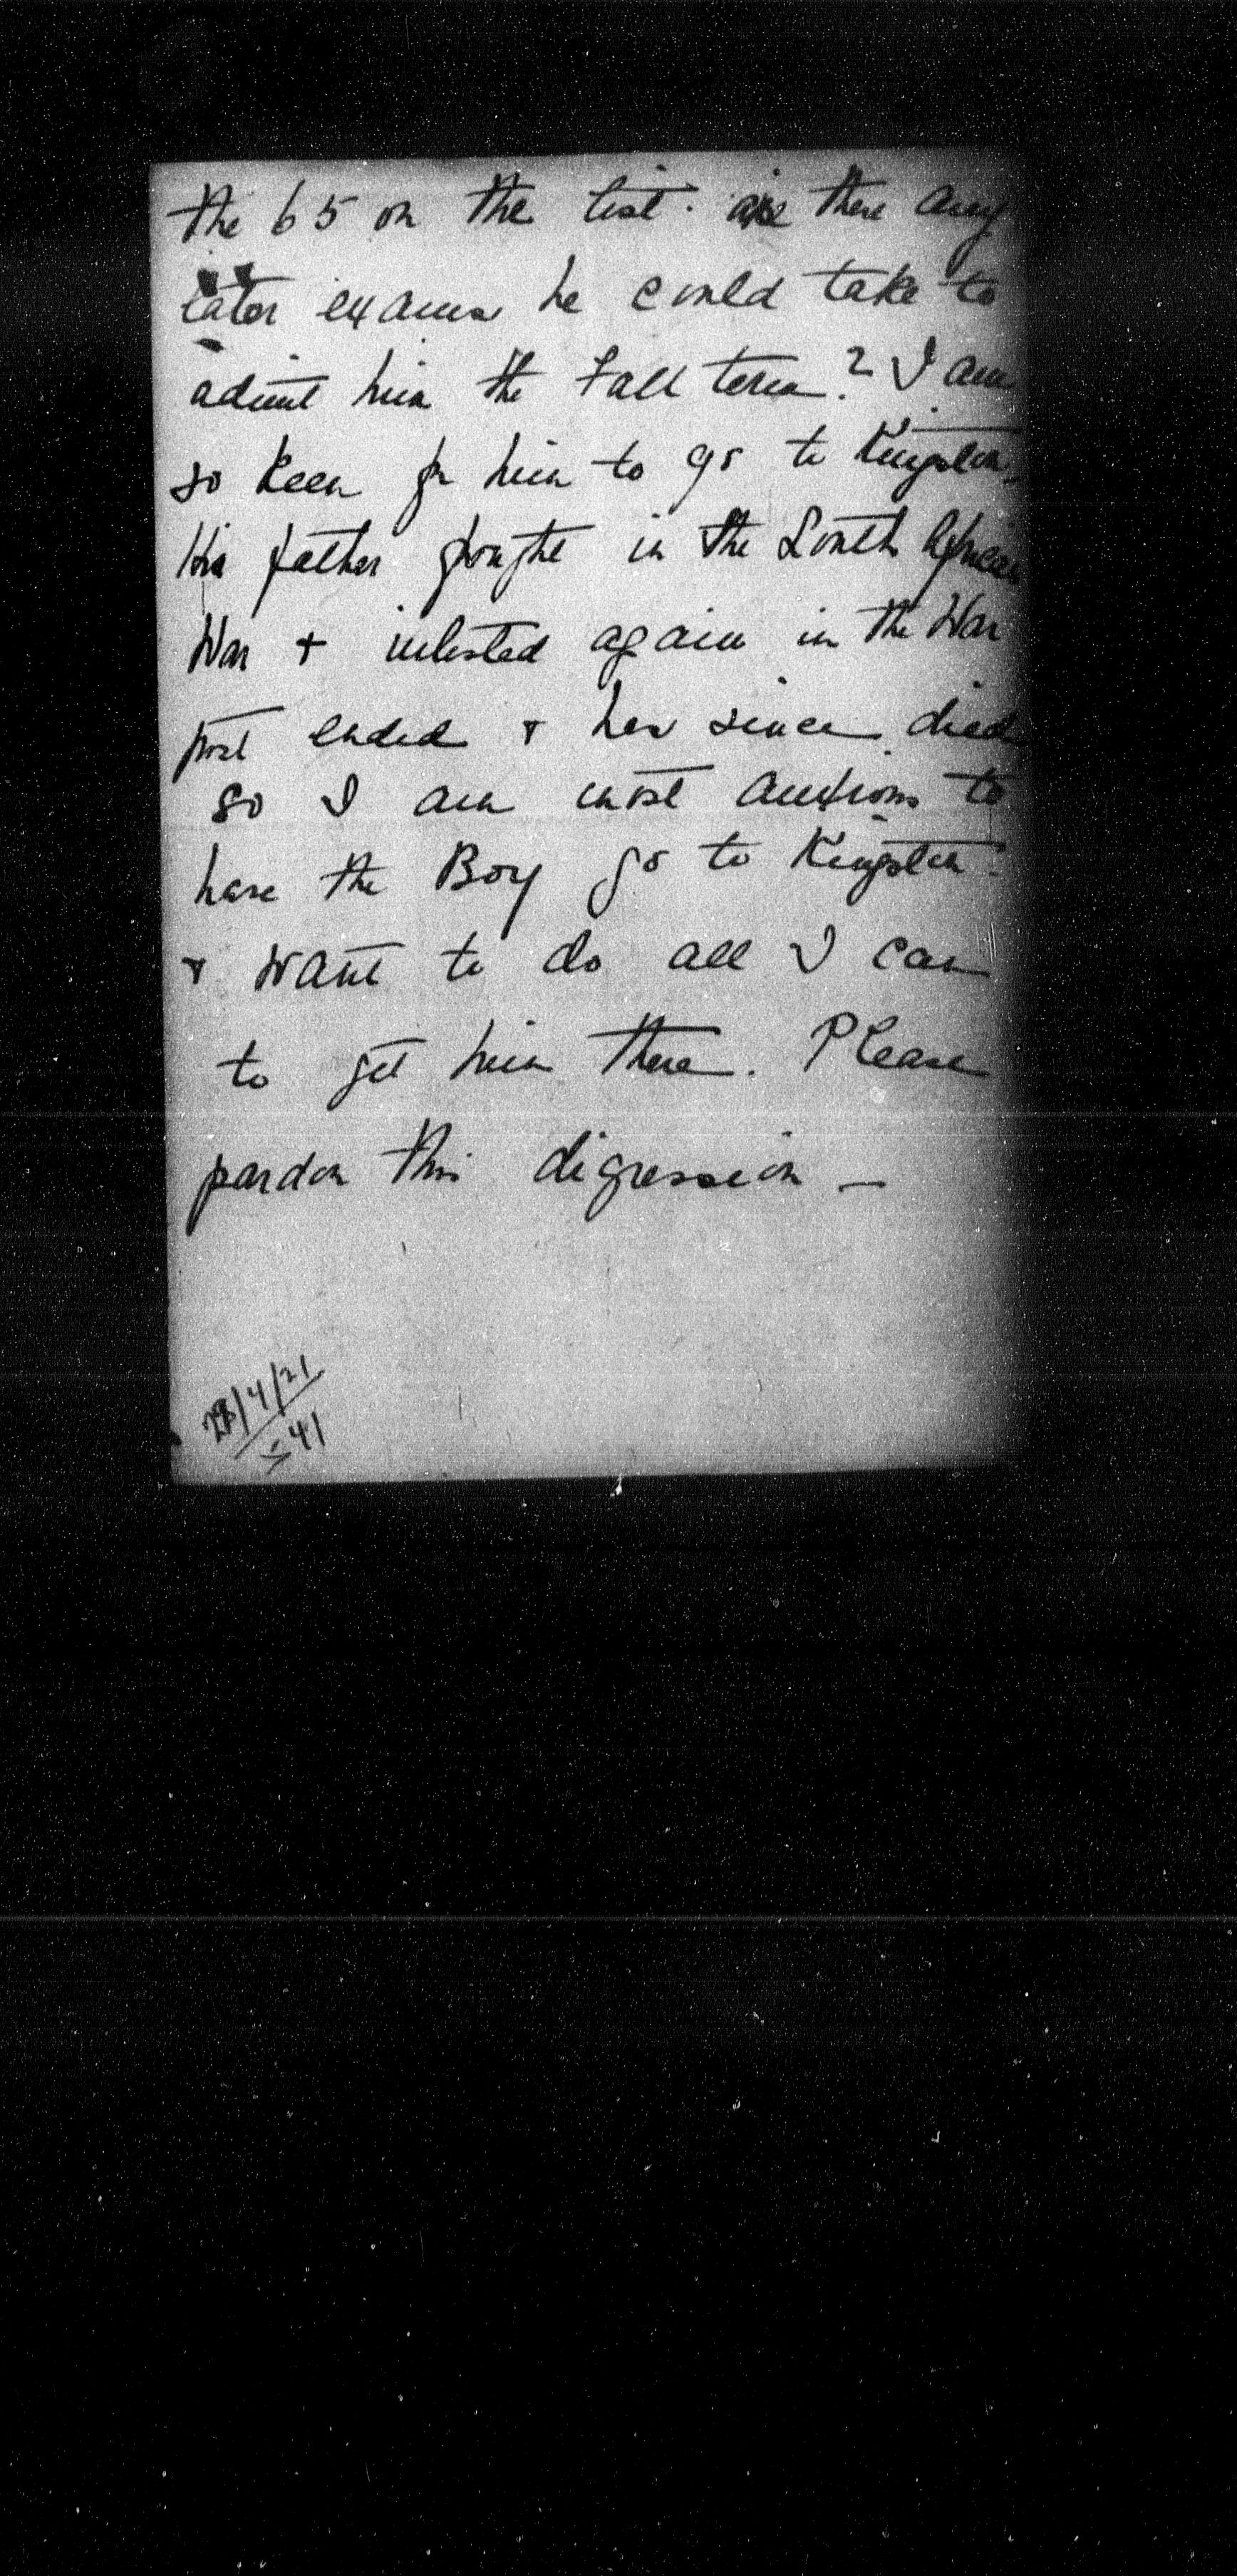 the 65 on the list. are there any
later exams he could take to
admit him the Fall term? I am
so keen for him to go to Kingston.
His father fought in the South African
War + inlisted again in the War
just ended + has since died
so I am most anxious to
have the Boy go to Kingston.
+ want to do all I can
to get him there. Please
pardon this digression —
28/4/21
541